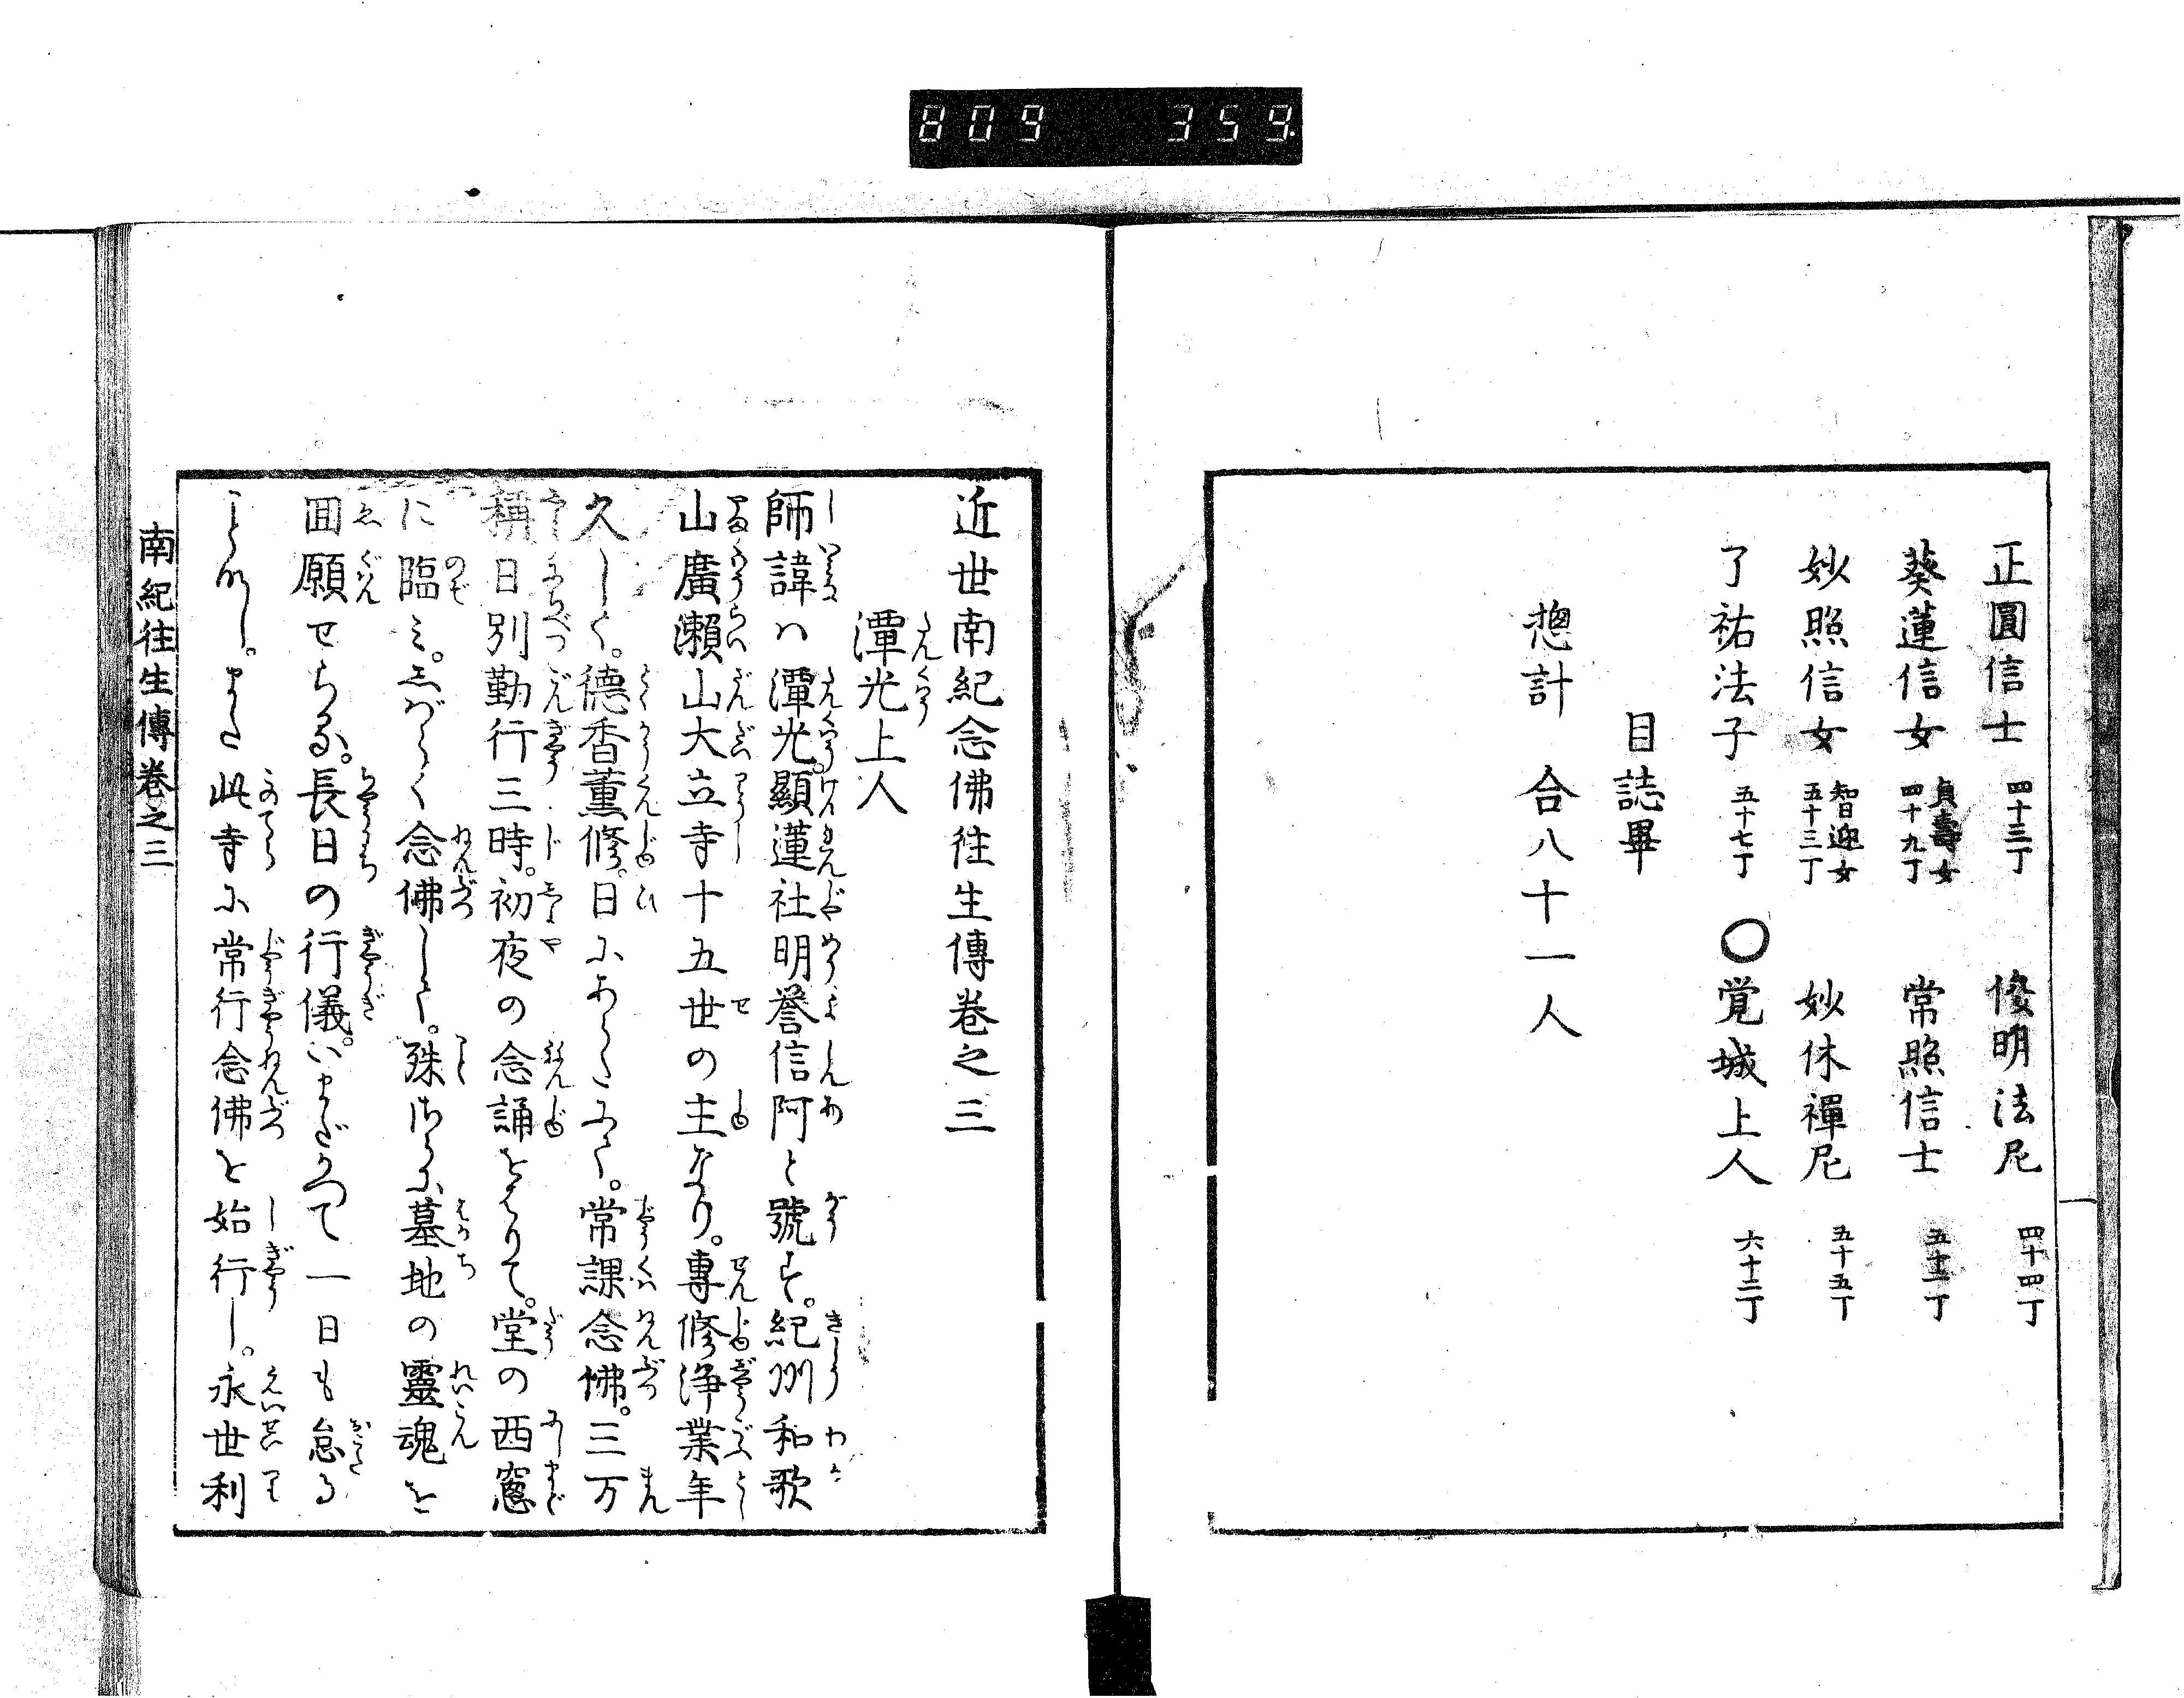 809 359
正圓信士 四十三丁 俊明法尼 四十四丁
葵蓮信女 貞壽女 四十九丁 常照信士 五十一丁
妙照信女 智迎女 五十三丁 妙休禪尼 五十五丁
了祐法子 五十七丁 〇覚城上人 六十二丁
目誌畢
摠計 合八十一人
近世南紀念佛往生傳卷之三
潭光上人
師諱ハ潭光。顯蓮社明誉信阿と號す。紀州和歌
山廣瀬山大立寺十五世の主なり。專修淨業年
久しく。德香薫修。日にあらたにして。常課念佛。三万
稱日別勤行三時。初夜の念誦をはりて。堂の西窓
に臨ミ。しバらく念佛して。殊さらに墓地の靈魂を
囬願せらる。長日の行儀。いまだかつて一日も怠る
ことなし。また此寺に常行念佛を始行し。永世利
南紀往生傳卷之三